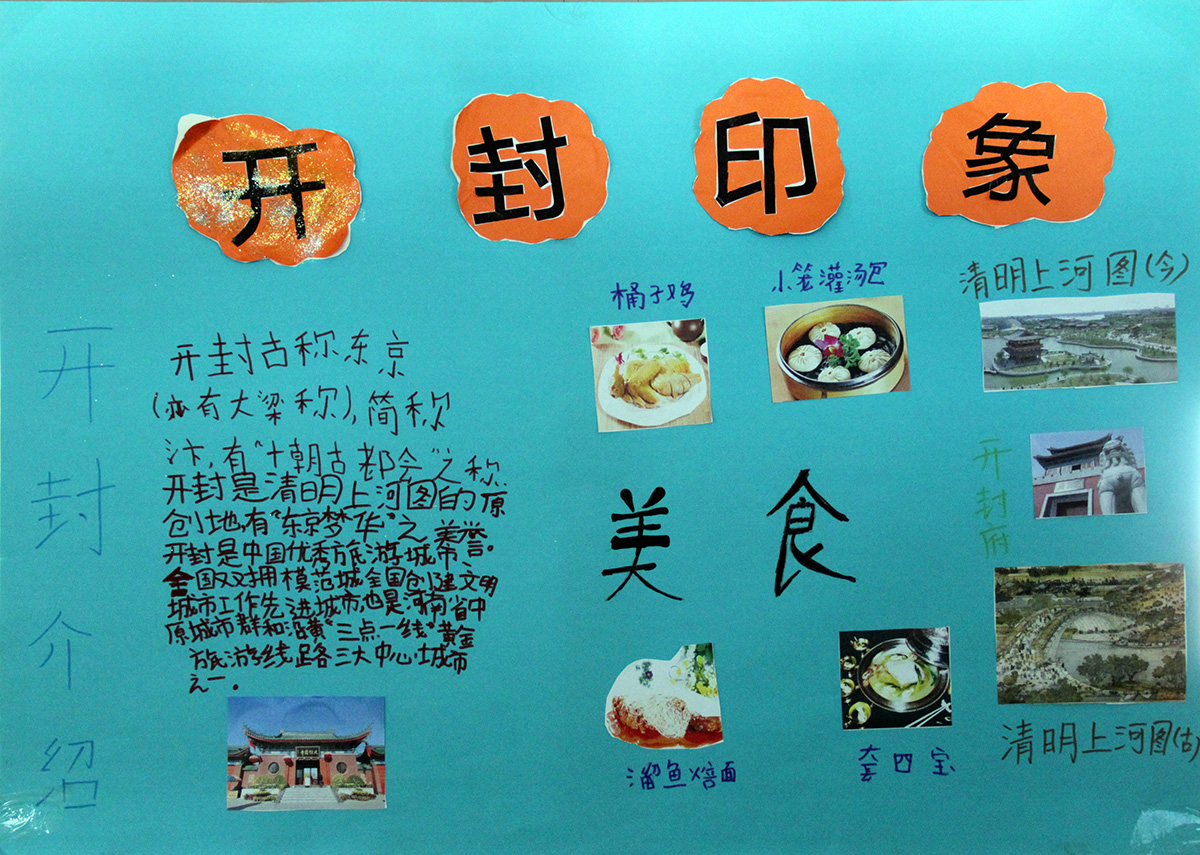 开封印象
开封介绍
开封古称东京
(亦有大梁称),简称
汴,有“十朝古都今”之称
开封是清明上河图的原
创地,有“东京梦华”之美誉。
开封是中国优秀旅游城市、
全国双拥模范城全国创建文明
城市工作先进城市,也是河南省中
原城市群和沿黄“三点一线”黄金
旅游线路三大中心城市
之一。
桶子鸡
小笼灌汤包
美食
溜鱼焙面
套四宝
清明上河图(今)
开封府
清明上河图(古)